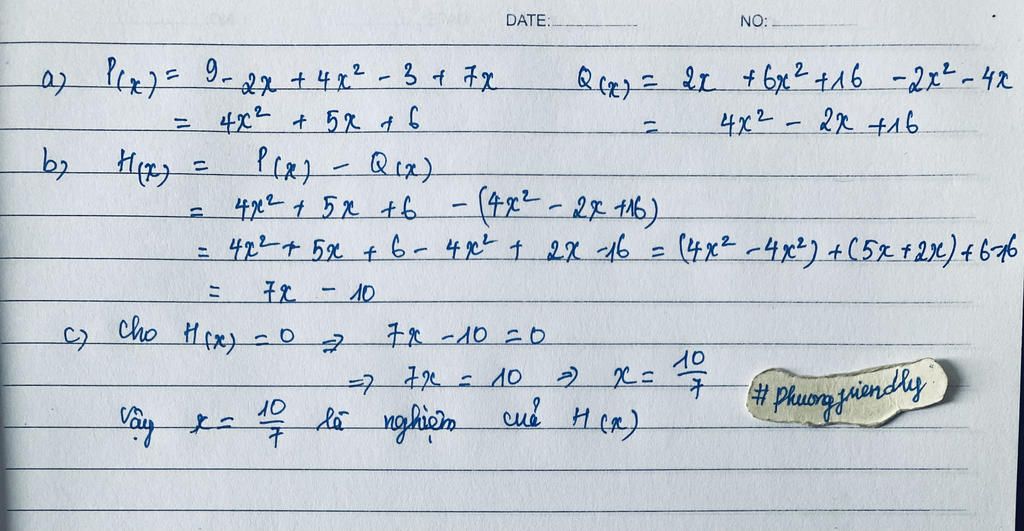 DATE: NO:
a) P(x) = 9 - 2x + 4x² - 3 + 7x Q(x) = 2x + 6x² + 16 - 2x² - 4x
= 4x² + 5x + 6 = 4x² - 2x + 16
b) H(x) = P(x) - Q(x)
= 4x² + 5x + 6 - (4x² - 2x + 16)
= 4x² + 5x + 6 - 4x² + 2x - 16 = (4x² - 4x²) + (5x + 2x) + 6 - 16
= 7x - 10
c) Cho H(x) = 0 ⇒ 7x - 10 = 0
⇒ 7x = 10 ⇒ x = 10/7
Vậy x = 10/7 là nghiệm của H(x)
#Phuongfriendly